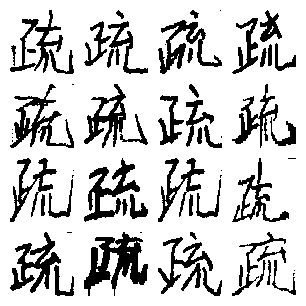 疏疏疏疏
疏疏疏疏
疏疏疏疏
疏疏疏疏